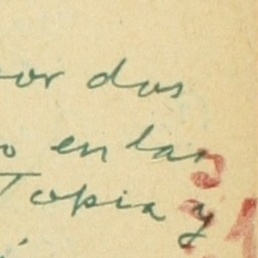 or dos
o en las
Topia y